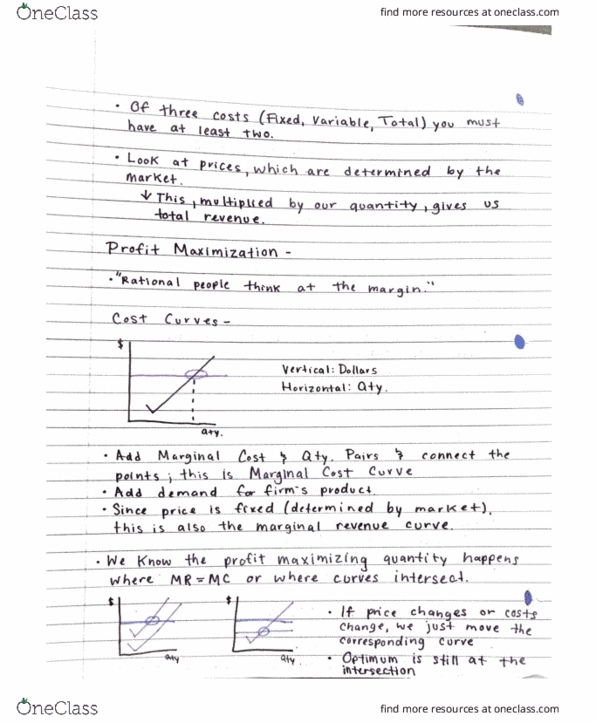 OneClass
find more resources at oneclass.com
• Of three costs (Fixed, Variable, Total) you must
have at least two.
• Look at prices, which are determined by the
market.
↓ This, multiplied by our quantity, gives us
total revenue.
Profit Maximization -
• "Rational people think at the margin."
Cost Curves -
$
Vertical: Dollars
Horizontal: Qty.
qty.
• Add Marginal Cost & Qty. Pairs & connect the
points; this is Marginal Cost Curve
• Add demand for firm's product
• Since price is fixed (determined by market),
this is also the marginal revenue curve.
• We Know the profit maximizing quantity happens
where MR = MC or where curves intersect.
$
qty
$
qty
• If price changes or costs
change, we just move the
corresponding curve
• Optimum is still at the
intersection
OneClass
find more resources at oneclass.com